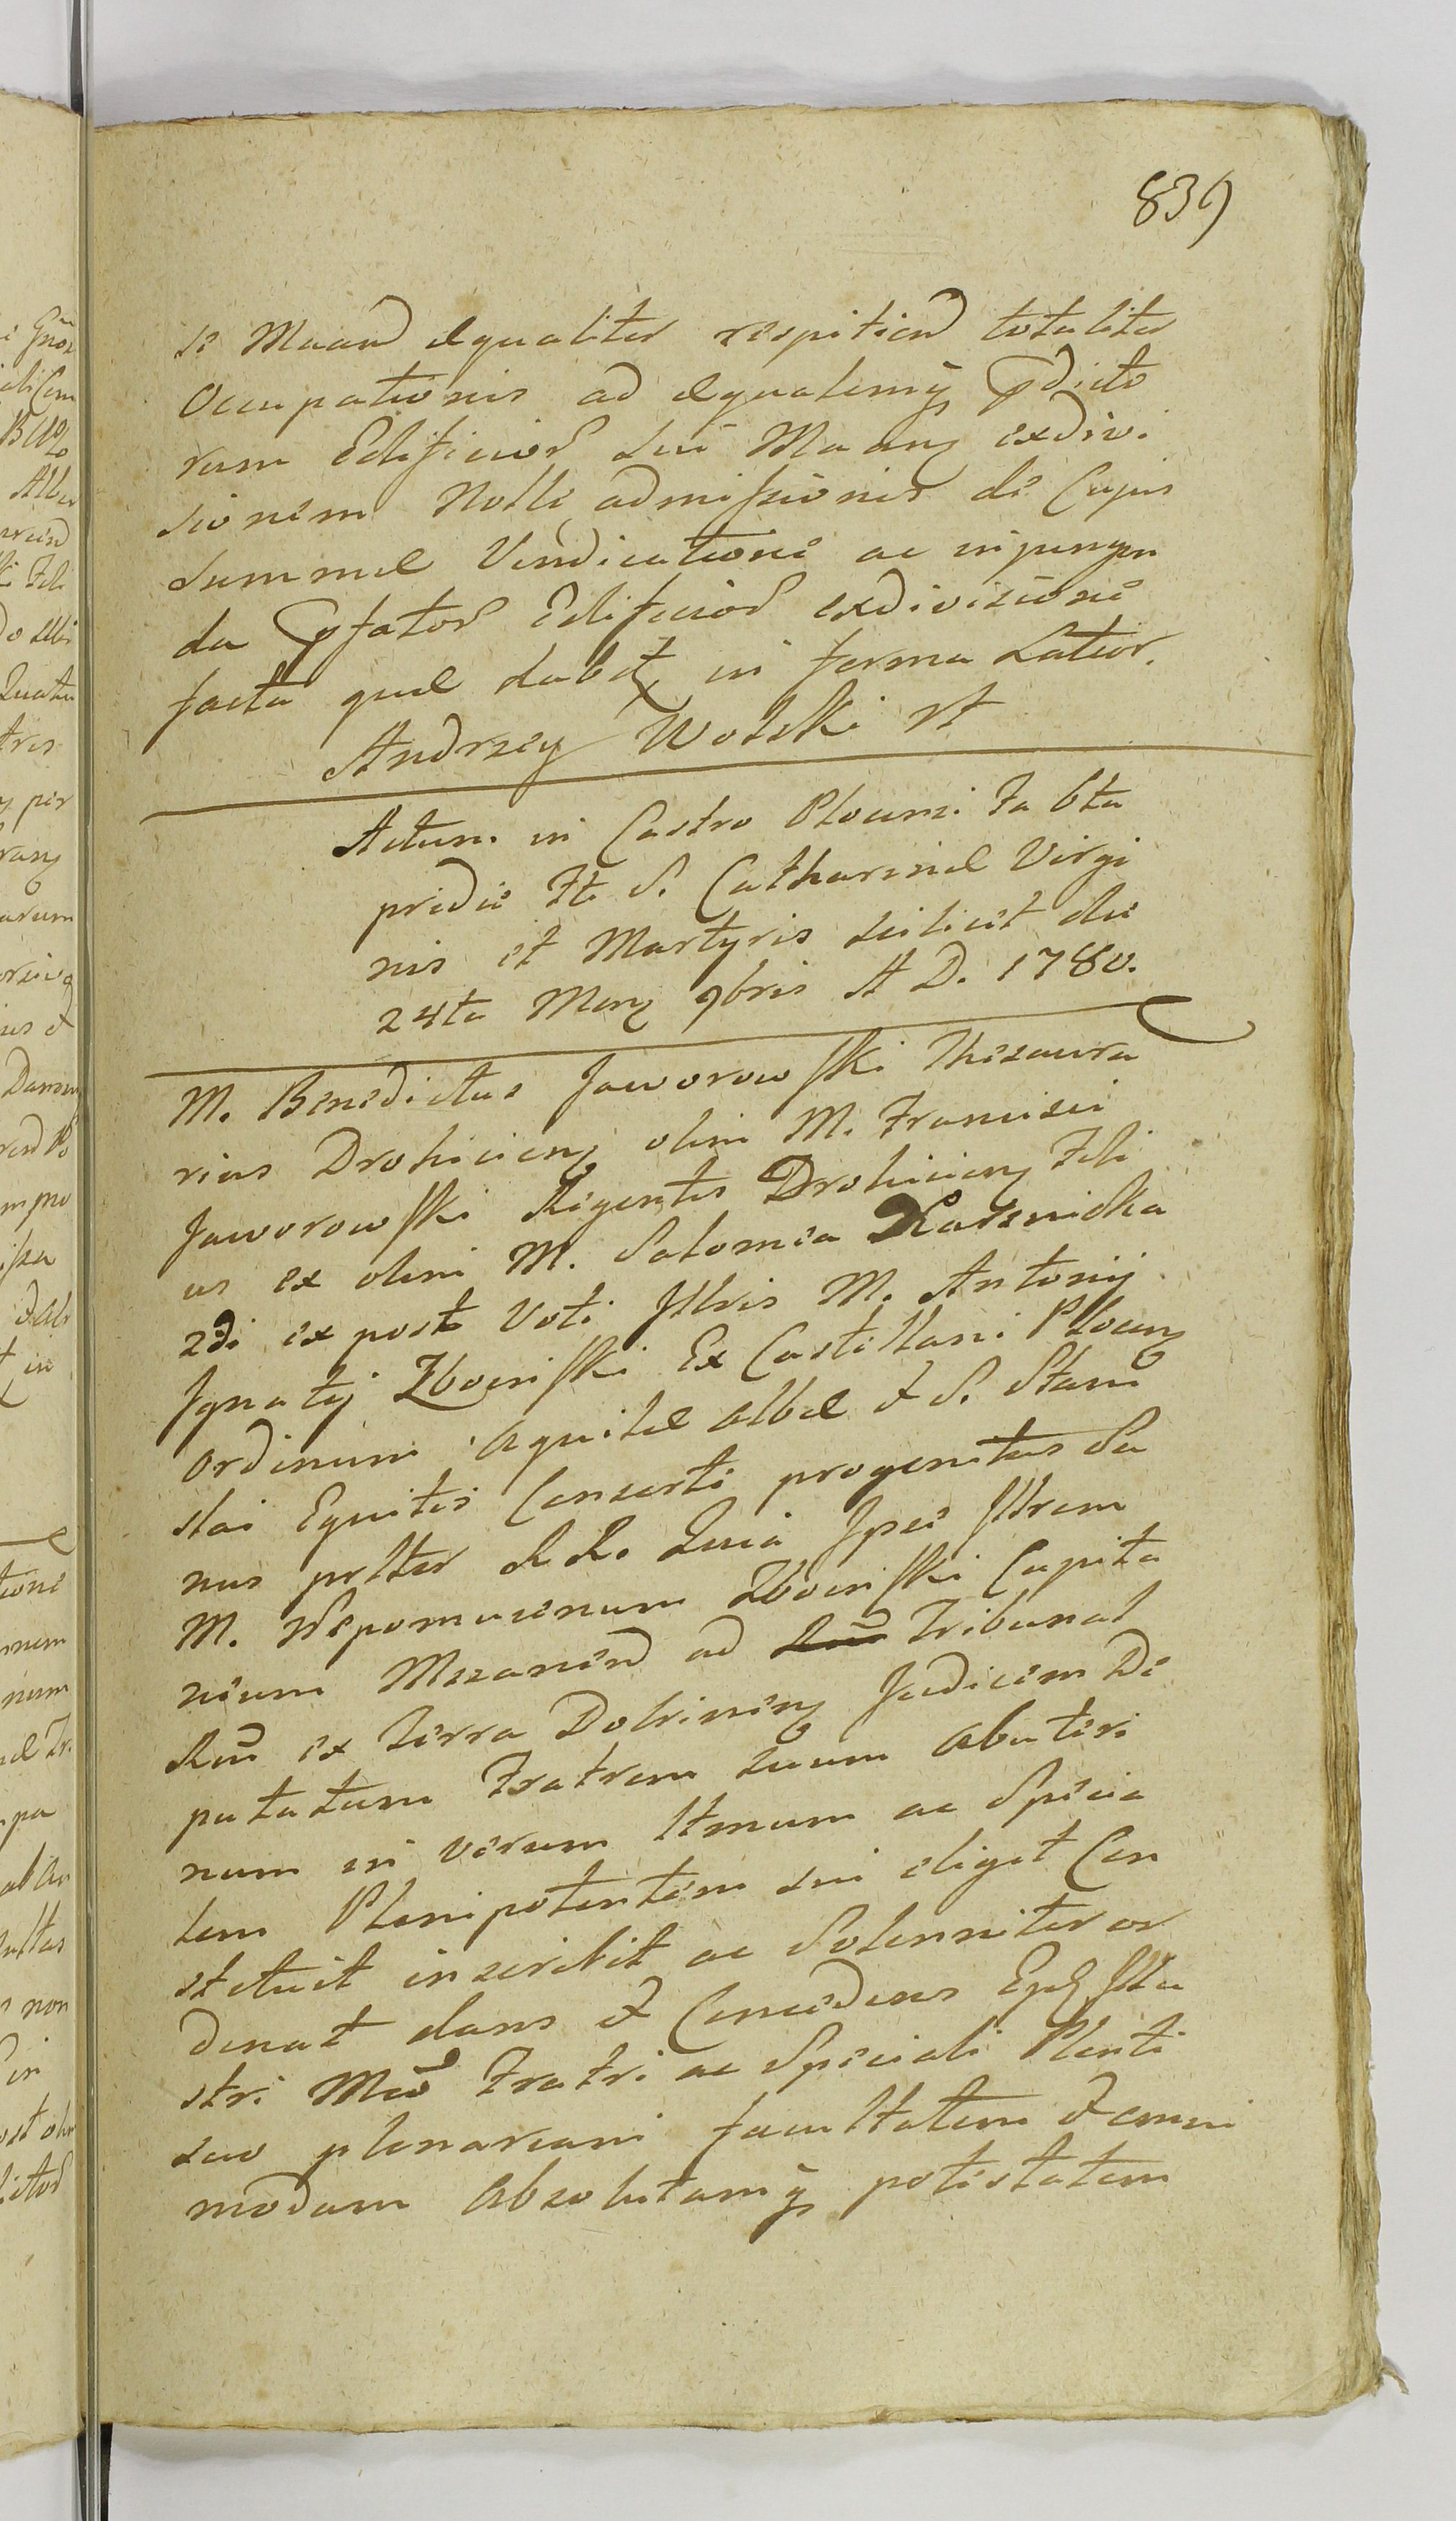 839
se Maand equaliter respitiend totaliter
Occupationis ad equalemq̃ pdicto
rum Edificior sui Maang exdivi
sionem Nolle admissionis de Cujus
summe Vendicatione ac injungen
da pfator Edificior exdivisione
facta que dabt, in forma Latior.
Andrzey Wolski
Actum in Castro Plocen. Fa 6ta
pridie Fti S. Catharine Virgi
nis et Martyris scilicet die
24ta Mens 9bris A D. 1780.
M. Benedictus Jaworowski Thesaura
rius Drohiciens olim M. Francisci
Jaworowski Regentis Drohiciens Fili
us ex olim M. Salomea Karsnicka
2di ex post Voti Illris M. Antonij
Ignatij Zboinski Ex Castellani Plocens
Ordinum Aquile Albe & S. Stani
slai Equitis Consorti progenitus Sa
nus prltter R R. Quia Ipse Illrem
M. Nepomucenum Zboinski Capita
neum Mszanen ad Tribunal
Rni ex Terra Dobrinens Judicem De
putatum Fratrem suum abuteri
num in verum ltmum ac Specia
lem Plenipotentem sui eligit Con
stituit inscribit ac Solenniter or
dinat dans & Concedens Illu
stri Mco Fratri ac Speciali Plenti
suo plenariam facultatem & omni
modam Absolutamq̃ potestatem